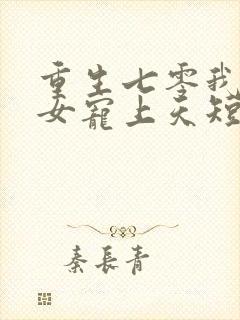 重生七零我
女宠上天短
秦長青